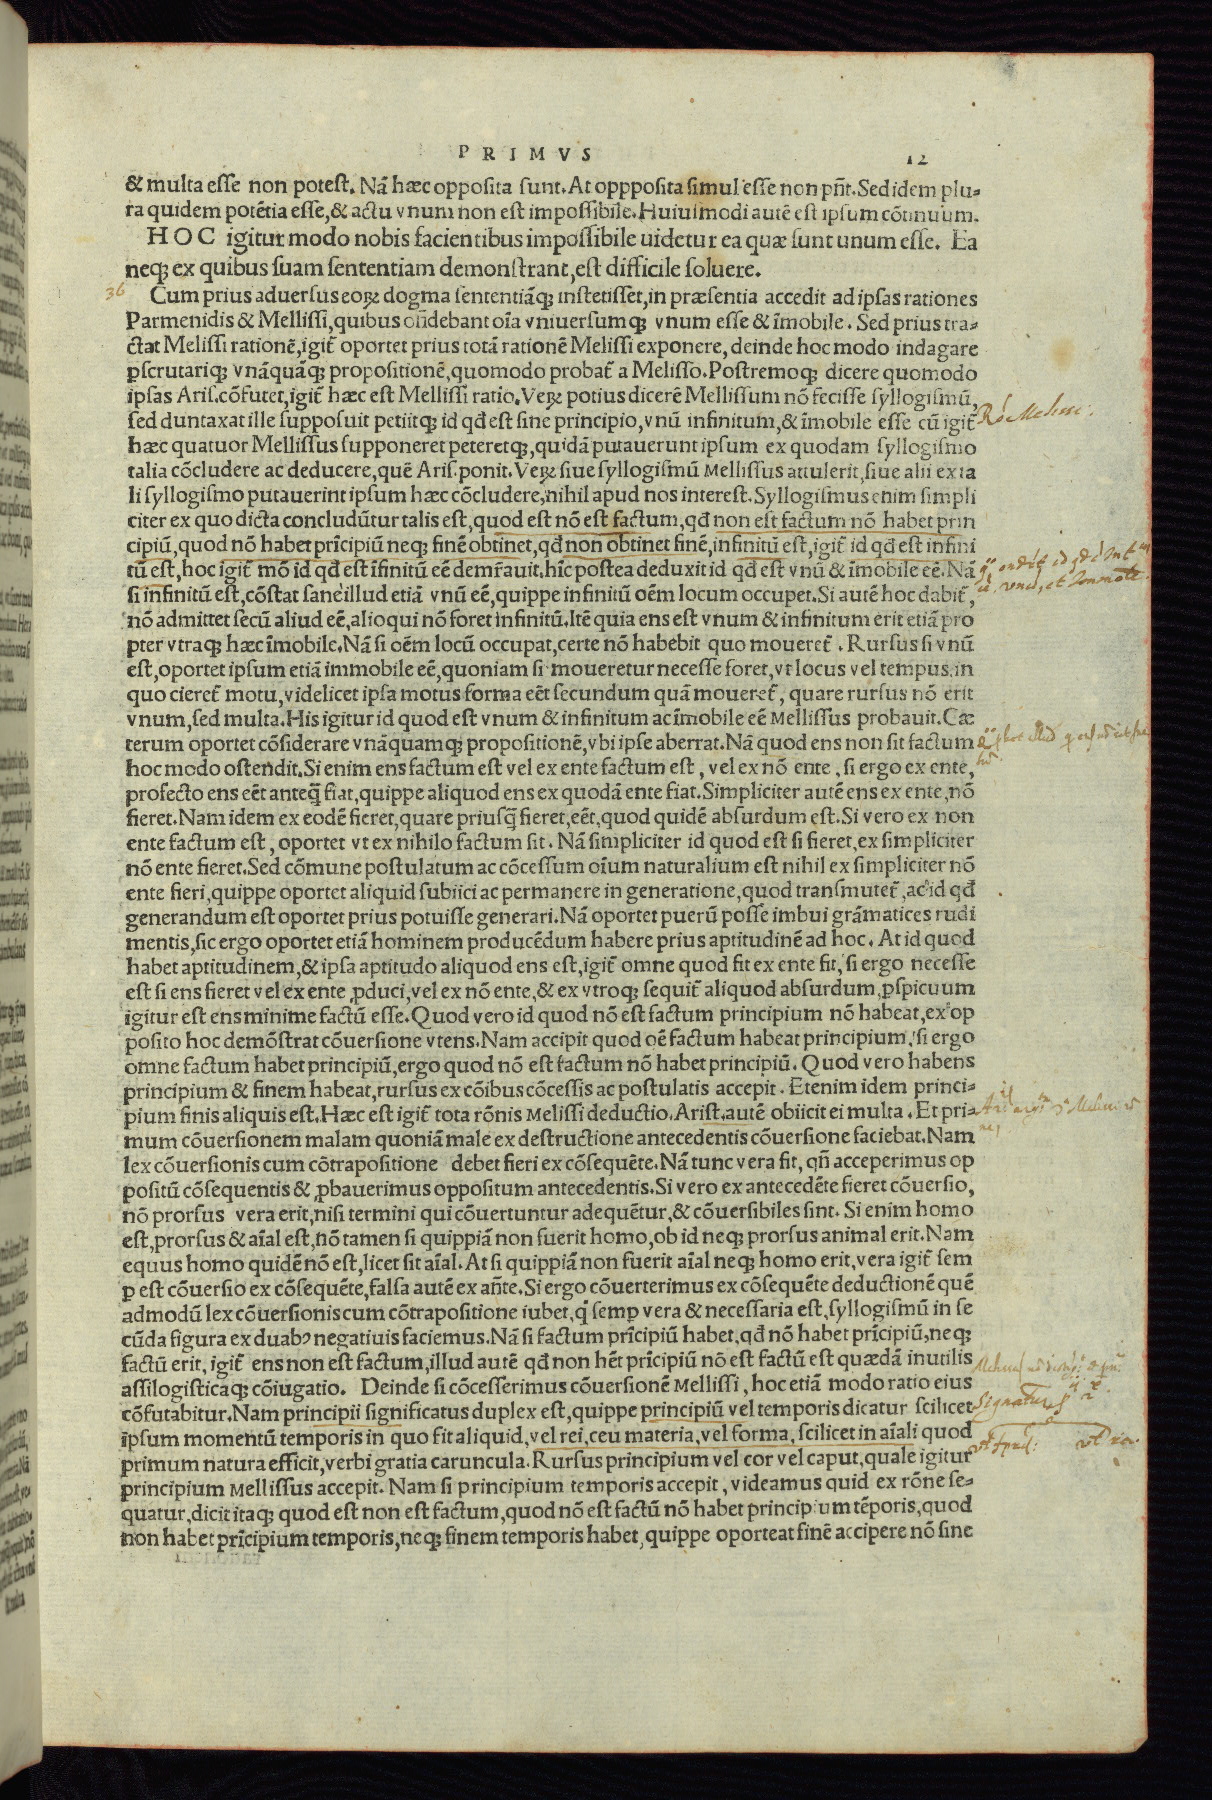 PRIMVS 12
& multa esse non potest. Nã hæc opposita sunt. At oppposita simul esse non pñt. Sed idem plu-
ra quidem potẽtia esse, & actu vnum non est impossibile. Huiusmodi autẽ est ipsum cõtinuum.
HOC igitur modo nobis facientibus impossibile uidetur ea quæ sunt unum esse. Ea
neqꝫ ex quibus suam sententiam demonstrant, est difficile soluere.
36
Cum prius aduersus eoꝝ dogma sententiãqꝫ institisset, in præsentia accedit ad ipsas rationes
Parmenidis & Mellissi, quibus oñdebant oĩa vniuersumqꝫ vnum esse & ĩmobile. Sed prius tra-
ctat Melissi rationẽ, igit̃ oportet prius totã rationẽ Melissi exponere, deinde hoc modo indagare
ꝑscrutariqꝫ vnãquãqꝫ propositionẽ, quomodo probat̃ a Melisso. Postremoqꝫ dicere quomodo
ipsas Aris. cõfutet, igit̃ hæc est Mellissi ratio. Veꝝ potius dicerẽ Mellissum nõ fecisse syllogismũ,
sed duntaxat ille supposuit petiitqꝫ id qd̃ est sine principio, vnũ infinitum, & ĩmobile esse cũ igit̃
hæc quatuor Mellissus supponeret peteretqꝫ, quidã putauerunt ipsum ex quodam syllogismo
talia cõcludere ac deducere, quẽ Aris. ponit. Veꝝ siue syllogismũ Mellissus attulerit, siue alii ex ta
li syllogismo putauerint ipsum hæc cõcludere, nihil apud nos interest. Syllogismus enim simpli
citer ex quo dicta concludũtur talis est, quod est nõ est factum, qd̃ non est factum nõ habet prin
cipiũ, quod nõ habet prĩcipiũ neqꝫ finẽ obtinet, qd̃ non obtinet finẽ, infinitũ est, igit̃ id qd̃ est infini
tũ est, hoc igit̃ mõ id qd̃ est ĩfinitũ eẽ demr̃auit. hĩc postea deduxit id qd̃ est vnũ & ĩmobile eẽ. Nã
si infinitũ est, cõstat sane illud etiã vnũ eẽ, quippe infinitũ oẽm locum occupet. Si autẽ hoc dabit̃,
nõ admittet secũ aliud eẽ, alioqui nõ foret infinitũ. Itẽ quia ens est vnum & infinitum erit etiã pro
pter vtraqꝫ hæc ĩmobile. Nã si oẽm locũ occupat, certe nõ habebit quo moueret̃. Rursus si vnũ
est, oportet ipsum etiã immobile eẽ, quoniam si moueretur necesse foret, vt locus vel tempus in
quo cieret̃ motu, videlicet ipsa motus forma eẽt secundum quã moueret̃, quare rursus nõ erit
vnum, sed multa. His igitur id quod est vnum & infinitum ac ĩmobile eẽ Mellissus probauit. Cæ
terum oportet cõsiderare vnãquamqꝫ propositionẽ, vbi ipse aberrat. Nã quod ens non sit factum
hoc modo ostendit. Si enim ens factum est vel ex ente factum est, vel ex nõ ente, si ergo ex ente,
profecto ens eẽt anteq̃ fiat, quippe aliquod ens ex quodã ente fiat. Simpliciter autẽ ens ex ente, nõ
fieret. Nam idem ex eodẽ fieret, quare priusq̃ fieret, eẽt, quod quidẽ absurdum est. Si vero ex non
ente factum est, oportet vt ex nihilo factum sit. Nã simpliciter id quod est si fieret, ex simpliciter
nõ ente fieret. Sed cõmune postulatum ac cõcessum oĩum naturalium est nihil ex simpliciter nõ
ente fieri, quippe oportet aliquid subiici ac permanere in generatione, quod transmutet̃, ac id qd̃
generandum est oportet prius potuisse generari. Nã oportet puerũ posse imbui grãmatices rudi
mentis, sic ergo oportet etiã hominem producẽdum habere prius aptitudinẽ ad hoc. At id quod
habet aptitudinem, & ipsa aptitudo aliquod ens est, igit̃ omne quod fit ex ente fit, si ergo necesse
est si ens fieret vel ex ente ꝓduci, vel ex nõ ente, & ex vtroqꝫ sequit̃ aliquod absurdum, ꝑspicuum
igitur est ens minime factũ esse. Quod vero id quod nõ est factum principium nõ habeat, ex op
posito hoc demõstrat cõuersione vtens. Nam accipit quod oẽ factum habeat principium, si ergo
omne factum habet principiũ, ergo quod nõ est factum nõ habet principiũ. Quod vero habens
principium & finem habeat, rursus ex cõibus cõcessis ac postulatis accepit. Etenim idem princi-
pium finis aliquis est. Hæc est igit̃ tota rõnis Melissi deductio. Arist. autẽ obiicit ei multa. Et pria
mum cõuersionem malam quoniã male ex destructione antecedentis cõuersione faciebat. Nam
lex cõuersionis cum cõtrapositione debet fieri ex cõsequẽte. Nã tunc vera fit, qñ acceperimus op
positũ cõsequentis & ꝓbauerimus oppositum antecedentis. Si vero ex antecedẽte fieret cõuersio,
nõ prorsus vera erit, nisi termini qui cõuertuntur adequẽtur, & cõuersibiles sint. Si enim homo
est, prorsus & aĩal est, nõ tamen si quippiã non fuerit homo, ob id neqꝫ prorsus animal erit. Nam
equus homo quidẽ nõ est, licet sit aĩal. At si quippiã non fuerit aĩal neqꝫ homo erit, vera igit̃ sem
ꝑ est cõuersio ex cõsequẽte, falsa autẽ ex añte. Si ergo cõuerterimus ex cõsequẽte deductionẽ quẽ
admodũ lex cõuersionis cum cõtrapositione iubet, q̃ semꝑ vera & necessaria est, syllogismũ in se
cũda figura ex duabꝰ negatiuis faciemus. Nã si factum prĩcipiũ habet, qd̃ nõ habet prĩcipiũ, neqꝫ
factũ erit, igit̃ ens non est factum, illud autẽ qd̃ non hẽt prĩcipiũ nõ est factũ est quædã inutilis
assilogisticaqꝫ cõiugatio. Deinde si cõcesserimus cõuersionẽ Mellissi, hoc etiã modo ratio eius
cõfutabitur. Nam principii significatus duplex est, quippe principiũ vel temporis dicatur scilicet
ĩpsum momentũ temporis in quo fit aliquid, vel rei, ceu materia, vel forma, scilicet in aĩali quod
primum natura efficit, verbi gratia caruncula. Rursus principium vel cor vel caput, quale igitur
principium Mellissus accepit. Nam si principium temporis accepit, videamus quid ex rõne se-
quatur, dicit itaqꝫ quod est non est factum, quod nõ est factũ nõ habet principium tẽporis, quod
non habet prĩcipium temporis, neqꝫ finem temporis habet, quippe oporteat finẽ accipere nõ sine